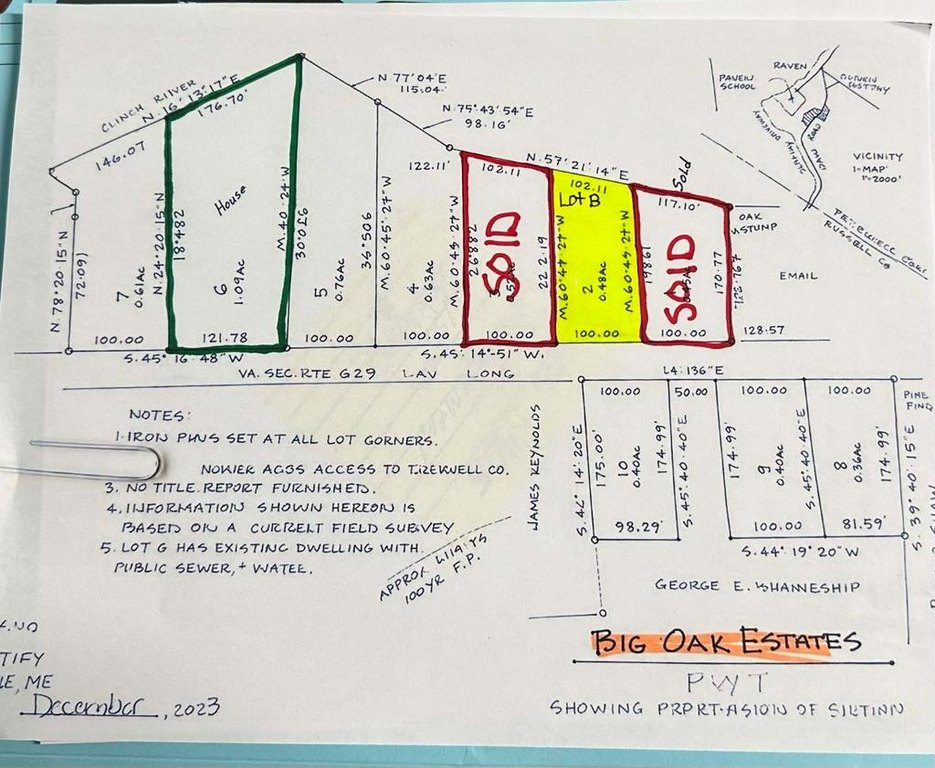 CLINCH RIIVER
N. 16° 13'17"E
176.70'
146.07
N 77°04'E
115.04.
N.75°43'54"E
98.16'
122.11'
102.11
N.57°21'14"E
102.11
Lot B
117.10'
Sold
OAK
STUMP
RAVEN
PAVEIN
SCHOOL
ROAD
VICINITY
1-MAP'
1"=2000'
RUSSELL CO
EMAIL
128.57
N 78°20.15"N
72.09)
7
0.61Ac
100.00
N.24°20.15"N
18°482
House
6
1.09Ac
121.78
M.40.24 W
30°0£6
5
0.76Ac
100.00
36°506
M.60.45'.27"W
4
0.63Ac
100.00
M.60°49.27"W
26.882
SOID
100.00
22 2.19
M.60°44.27"W
2
0.48Ac
100.00
M.60°45.27"W
SOID
100.00
170.77
S.45° 16'48" W
S.45' 14°-51" W.
VA. SEC. RTE G29 LAV LONG
NOTES:
1. IRON PWS SET AT ALL LOT GORNERS.
NOWEK AC3S ACCESS TO TIREWELL CO.
3. NO TITLE REPORT FURNISHED.
4. INFORMATION SHOWN HEREON IS
BASED ON A CURRENT FIELD SUBVEY
5. LOT G HAS EXISTING DWELLING WITH
PUBLIC SEWER, + WATEE.
100YR F.P.
L4:136"E
100.00
50.00
100.00
100.00
PINE
FIND
JAMES REYNOLDS
S.42° 14'.20"E
175.00'
10
0.40Ac
174.99'
98.29'
S.45°40'40"E
174.99'
9
0.40Ac
100.00
S.45°40'40"E
8
0.36Ac
174.99'
81.59'
S. 39°40'15"E
S.44° 19' 20"W
GEORGE E. WHANNESHIP
BIG OAK ESTATES
PWT
SHOWING PRPRT-ASION OF SILTINN
TIFY
LE, ME
December, 2023